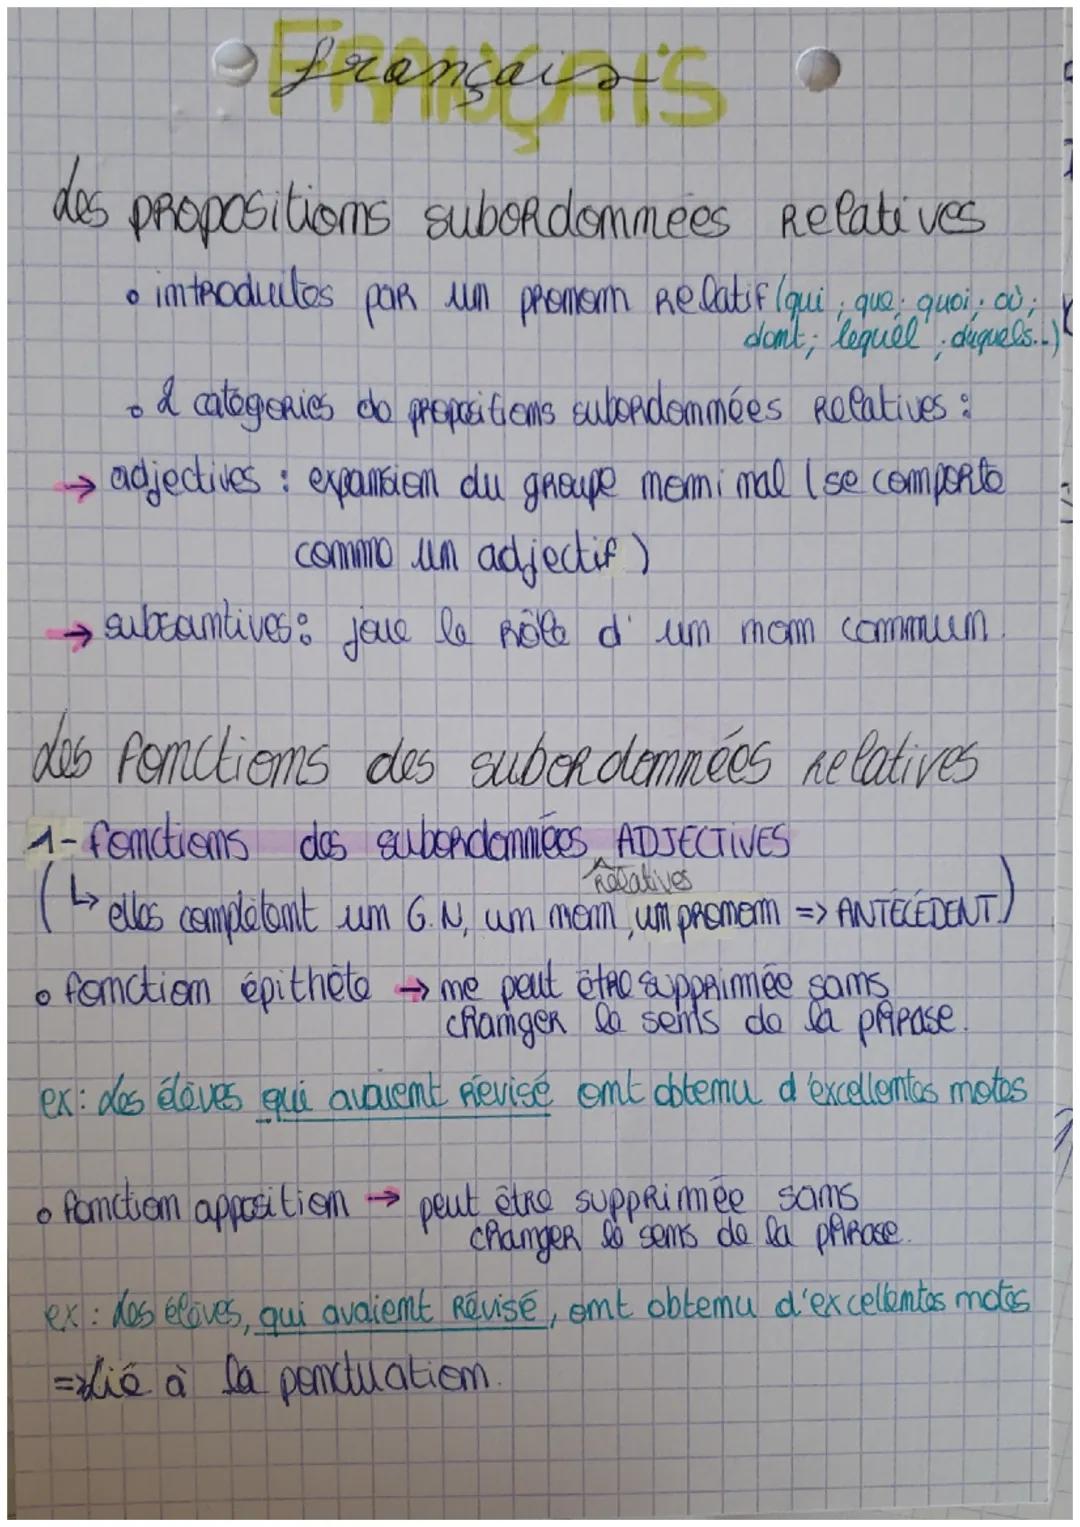 FRANÇAIS
français
Les propositions subordonnées relatives
• introduites par un pronom relatif (qui ; que ; quoi ; où ;
dont ; lequel ; duquels...)
• 2 catégories de propositions subordonnées relatives :
→ adjectives : expansion du groupe nominal (se comporte
comme un adjectif)
→ subsantives : joue le rôle d'un nom commun.
Les fonctions des subordonnées relatives
1- fonctions des subordonnées ADJECTIVES
relatives
(↳ elles complètent un G.N, un nom, un pronom => ANTÉCÉDENT.)
• fonction épithète → ne peut être supprimée sans
changer le sens de la phrase.
ex : les élèves qui avaient révisé ont obtenu d'excellentes notes
• fonction apposition → peut être supprimée sans
changer le sens de la phrase.
ex : les élèves, qui avaient révisé, ont obtenu d'excellentes notes
=> lié à la ponctuation.